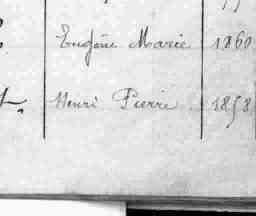 Eugène Marie 1860
Henri Pierre 1858